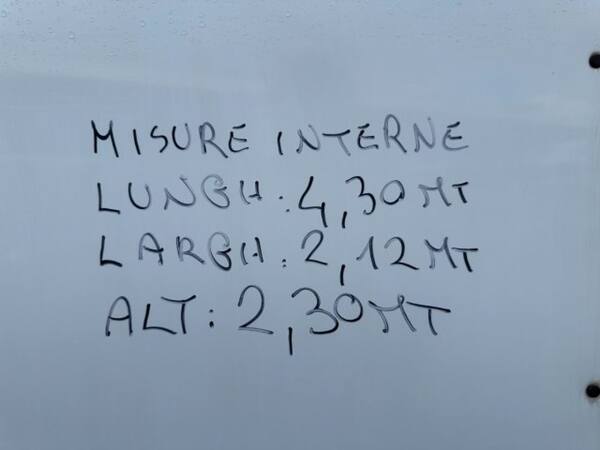 MISURE INTERNE
LUNGH: 4,30 MT
LARGH: 2,12 MT
ALT: 2,30 MT